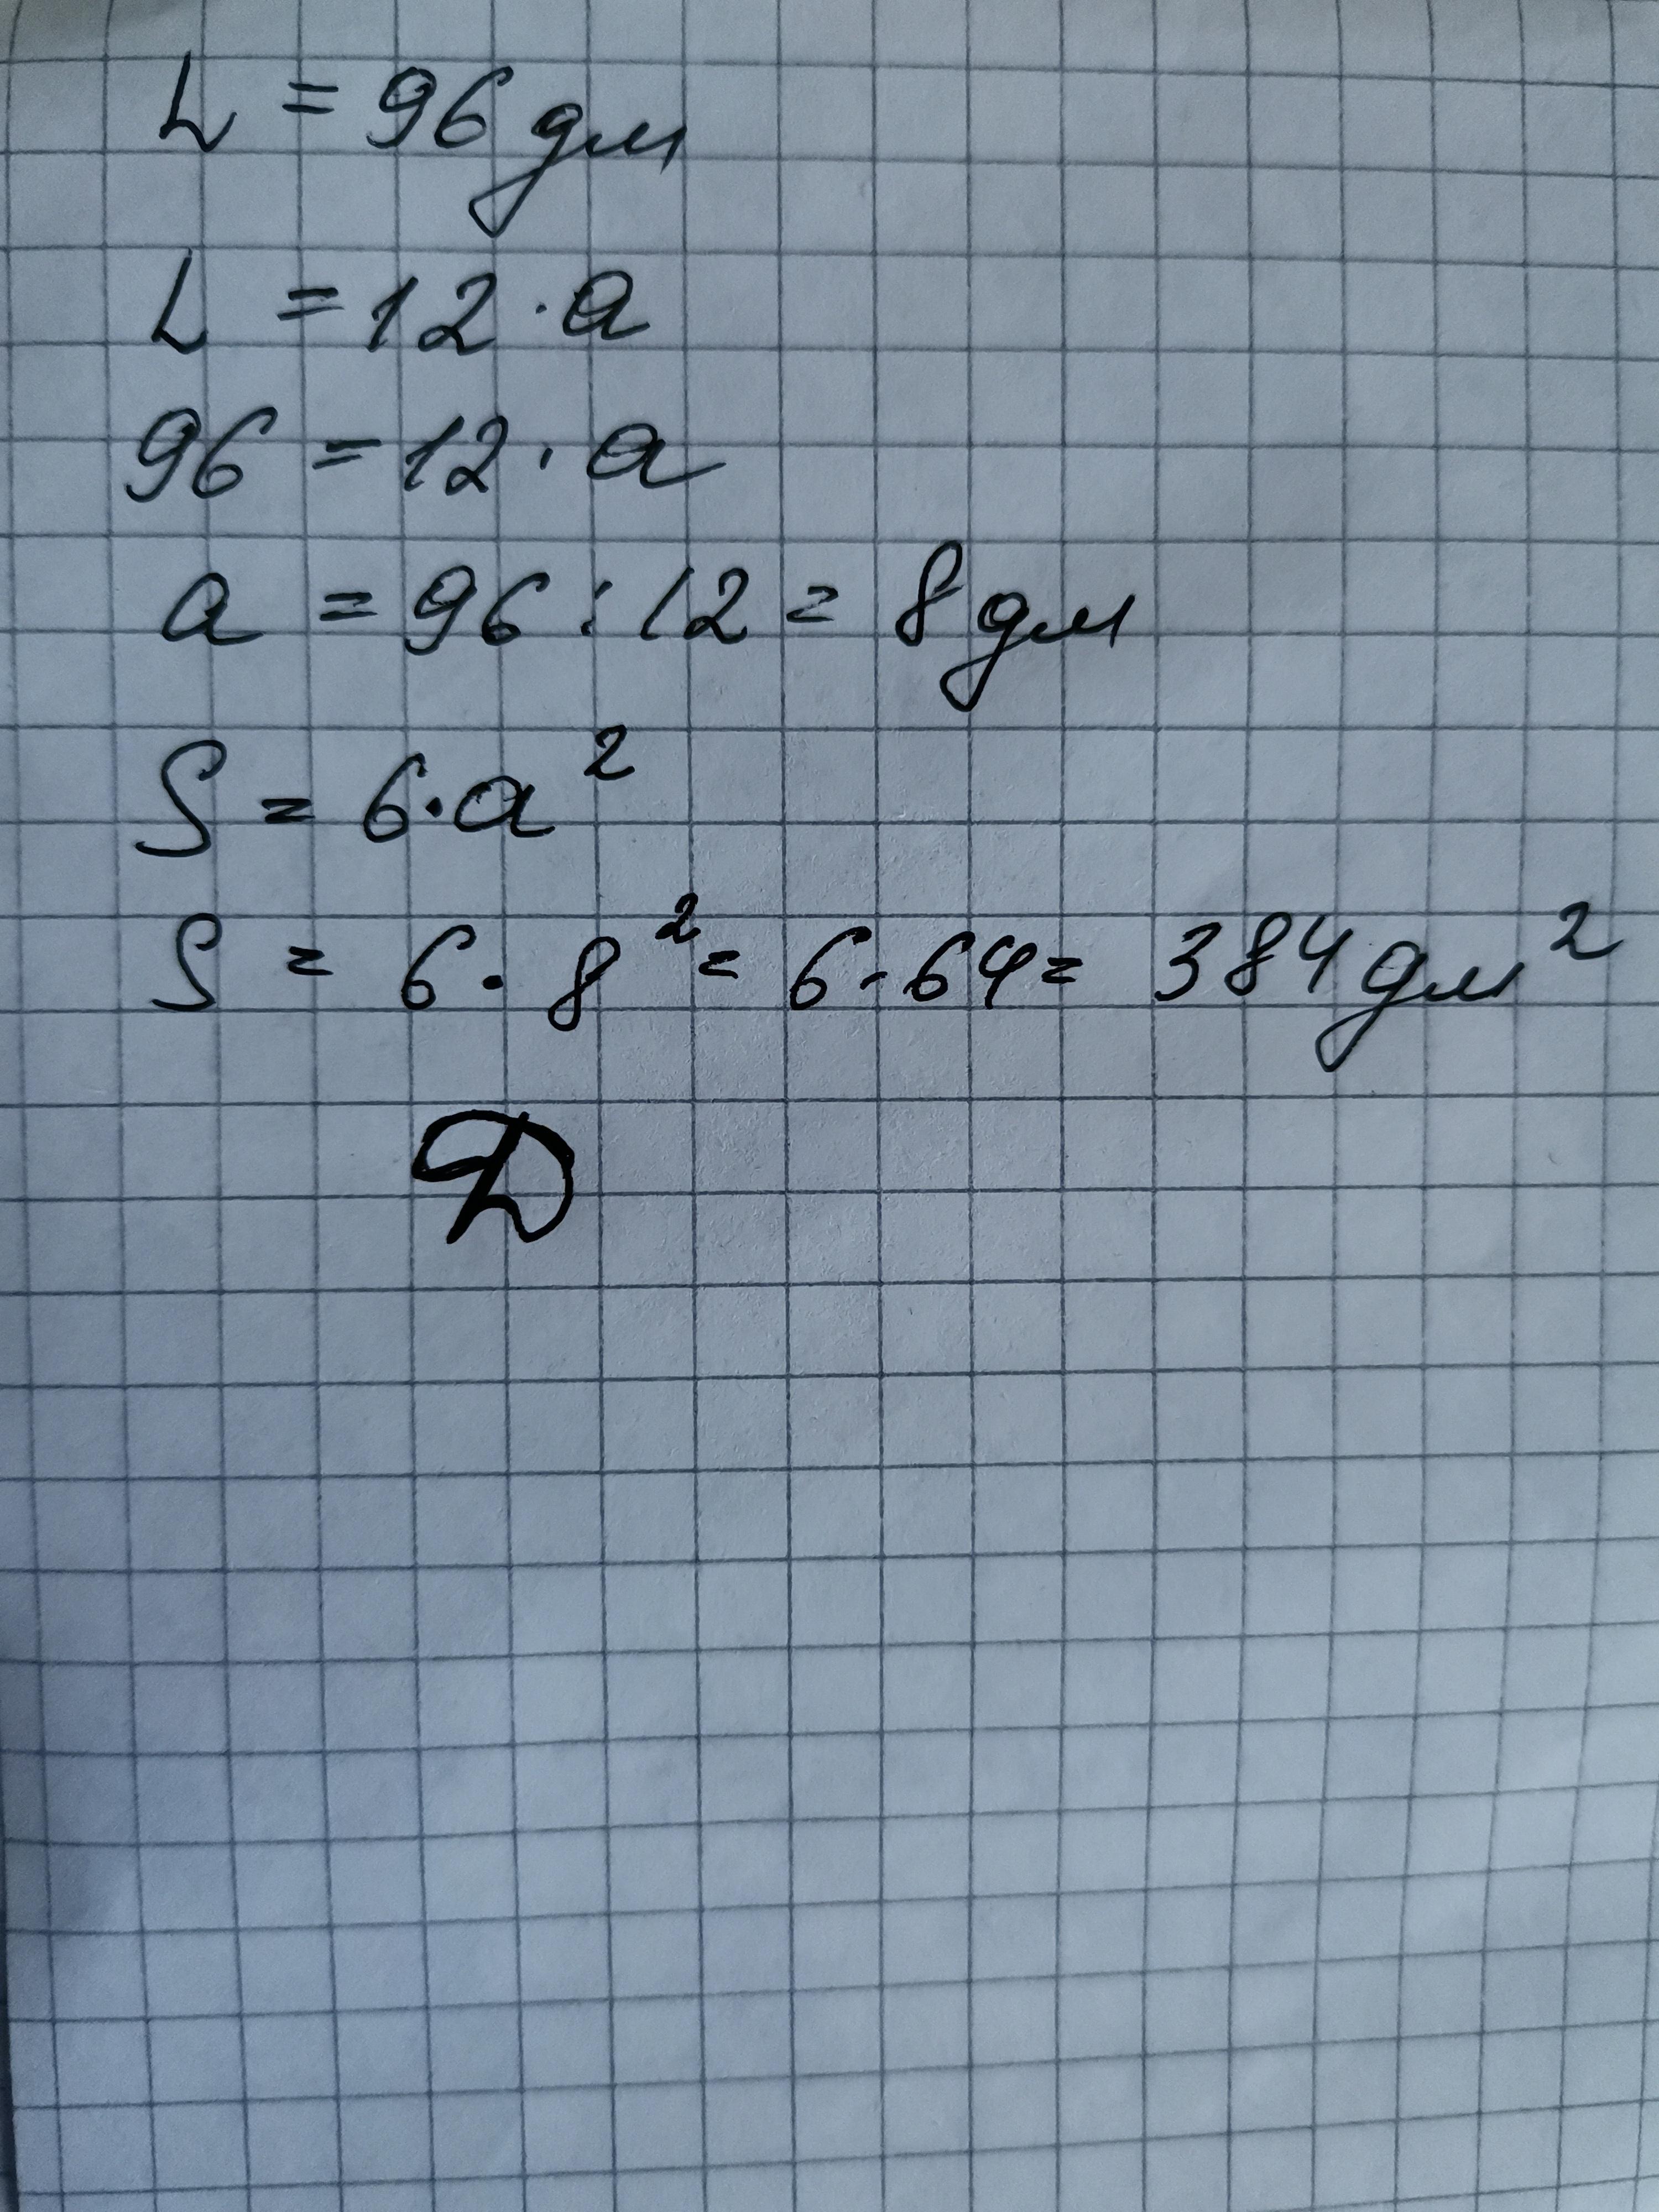 L = 96 дм
L = 12 · a
96 = 12 · a
a = 96 : 12 = 8 дм
S = 6 · a²
S = 6 · 8² = 6 · 64 = 384 дм²
Д